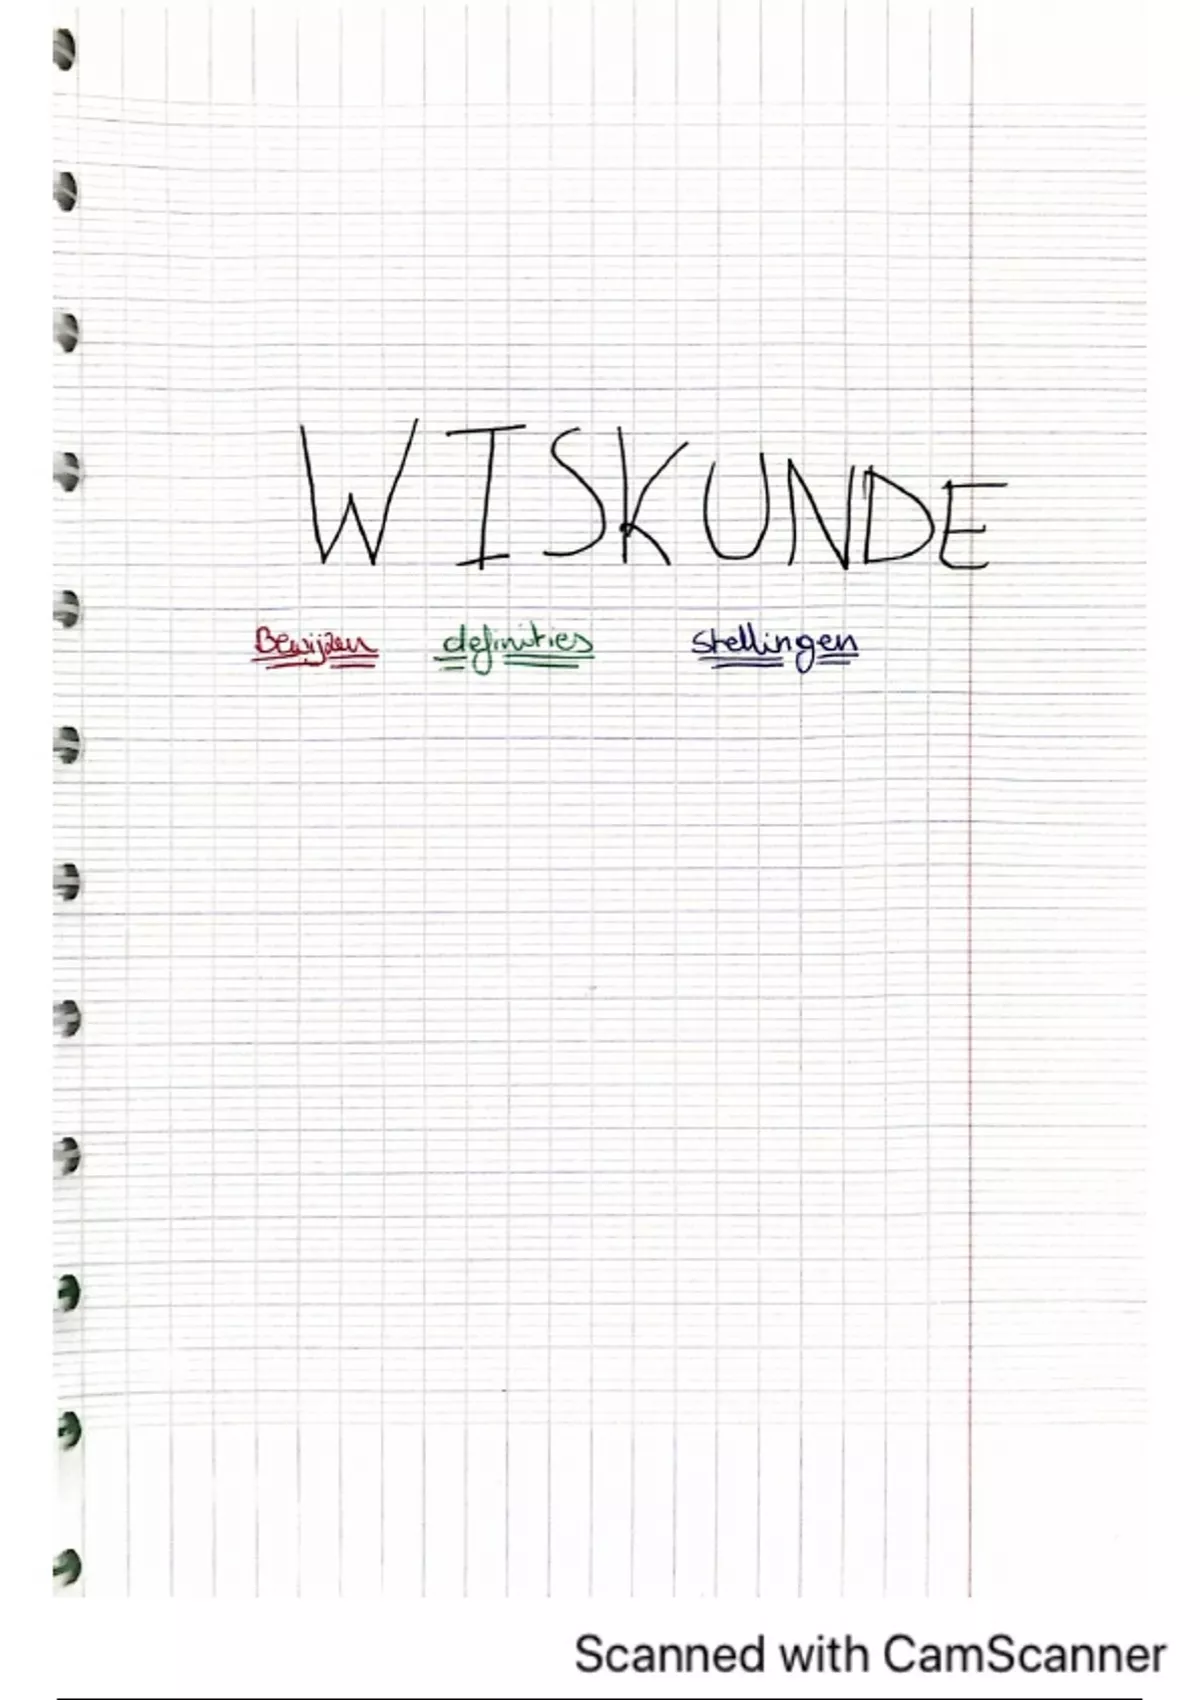 WISKUNDE
Bewijzen definities stellingen
Scanned with CamScanner